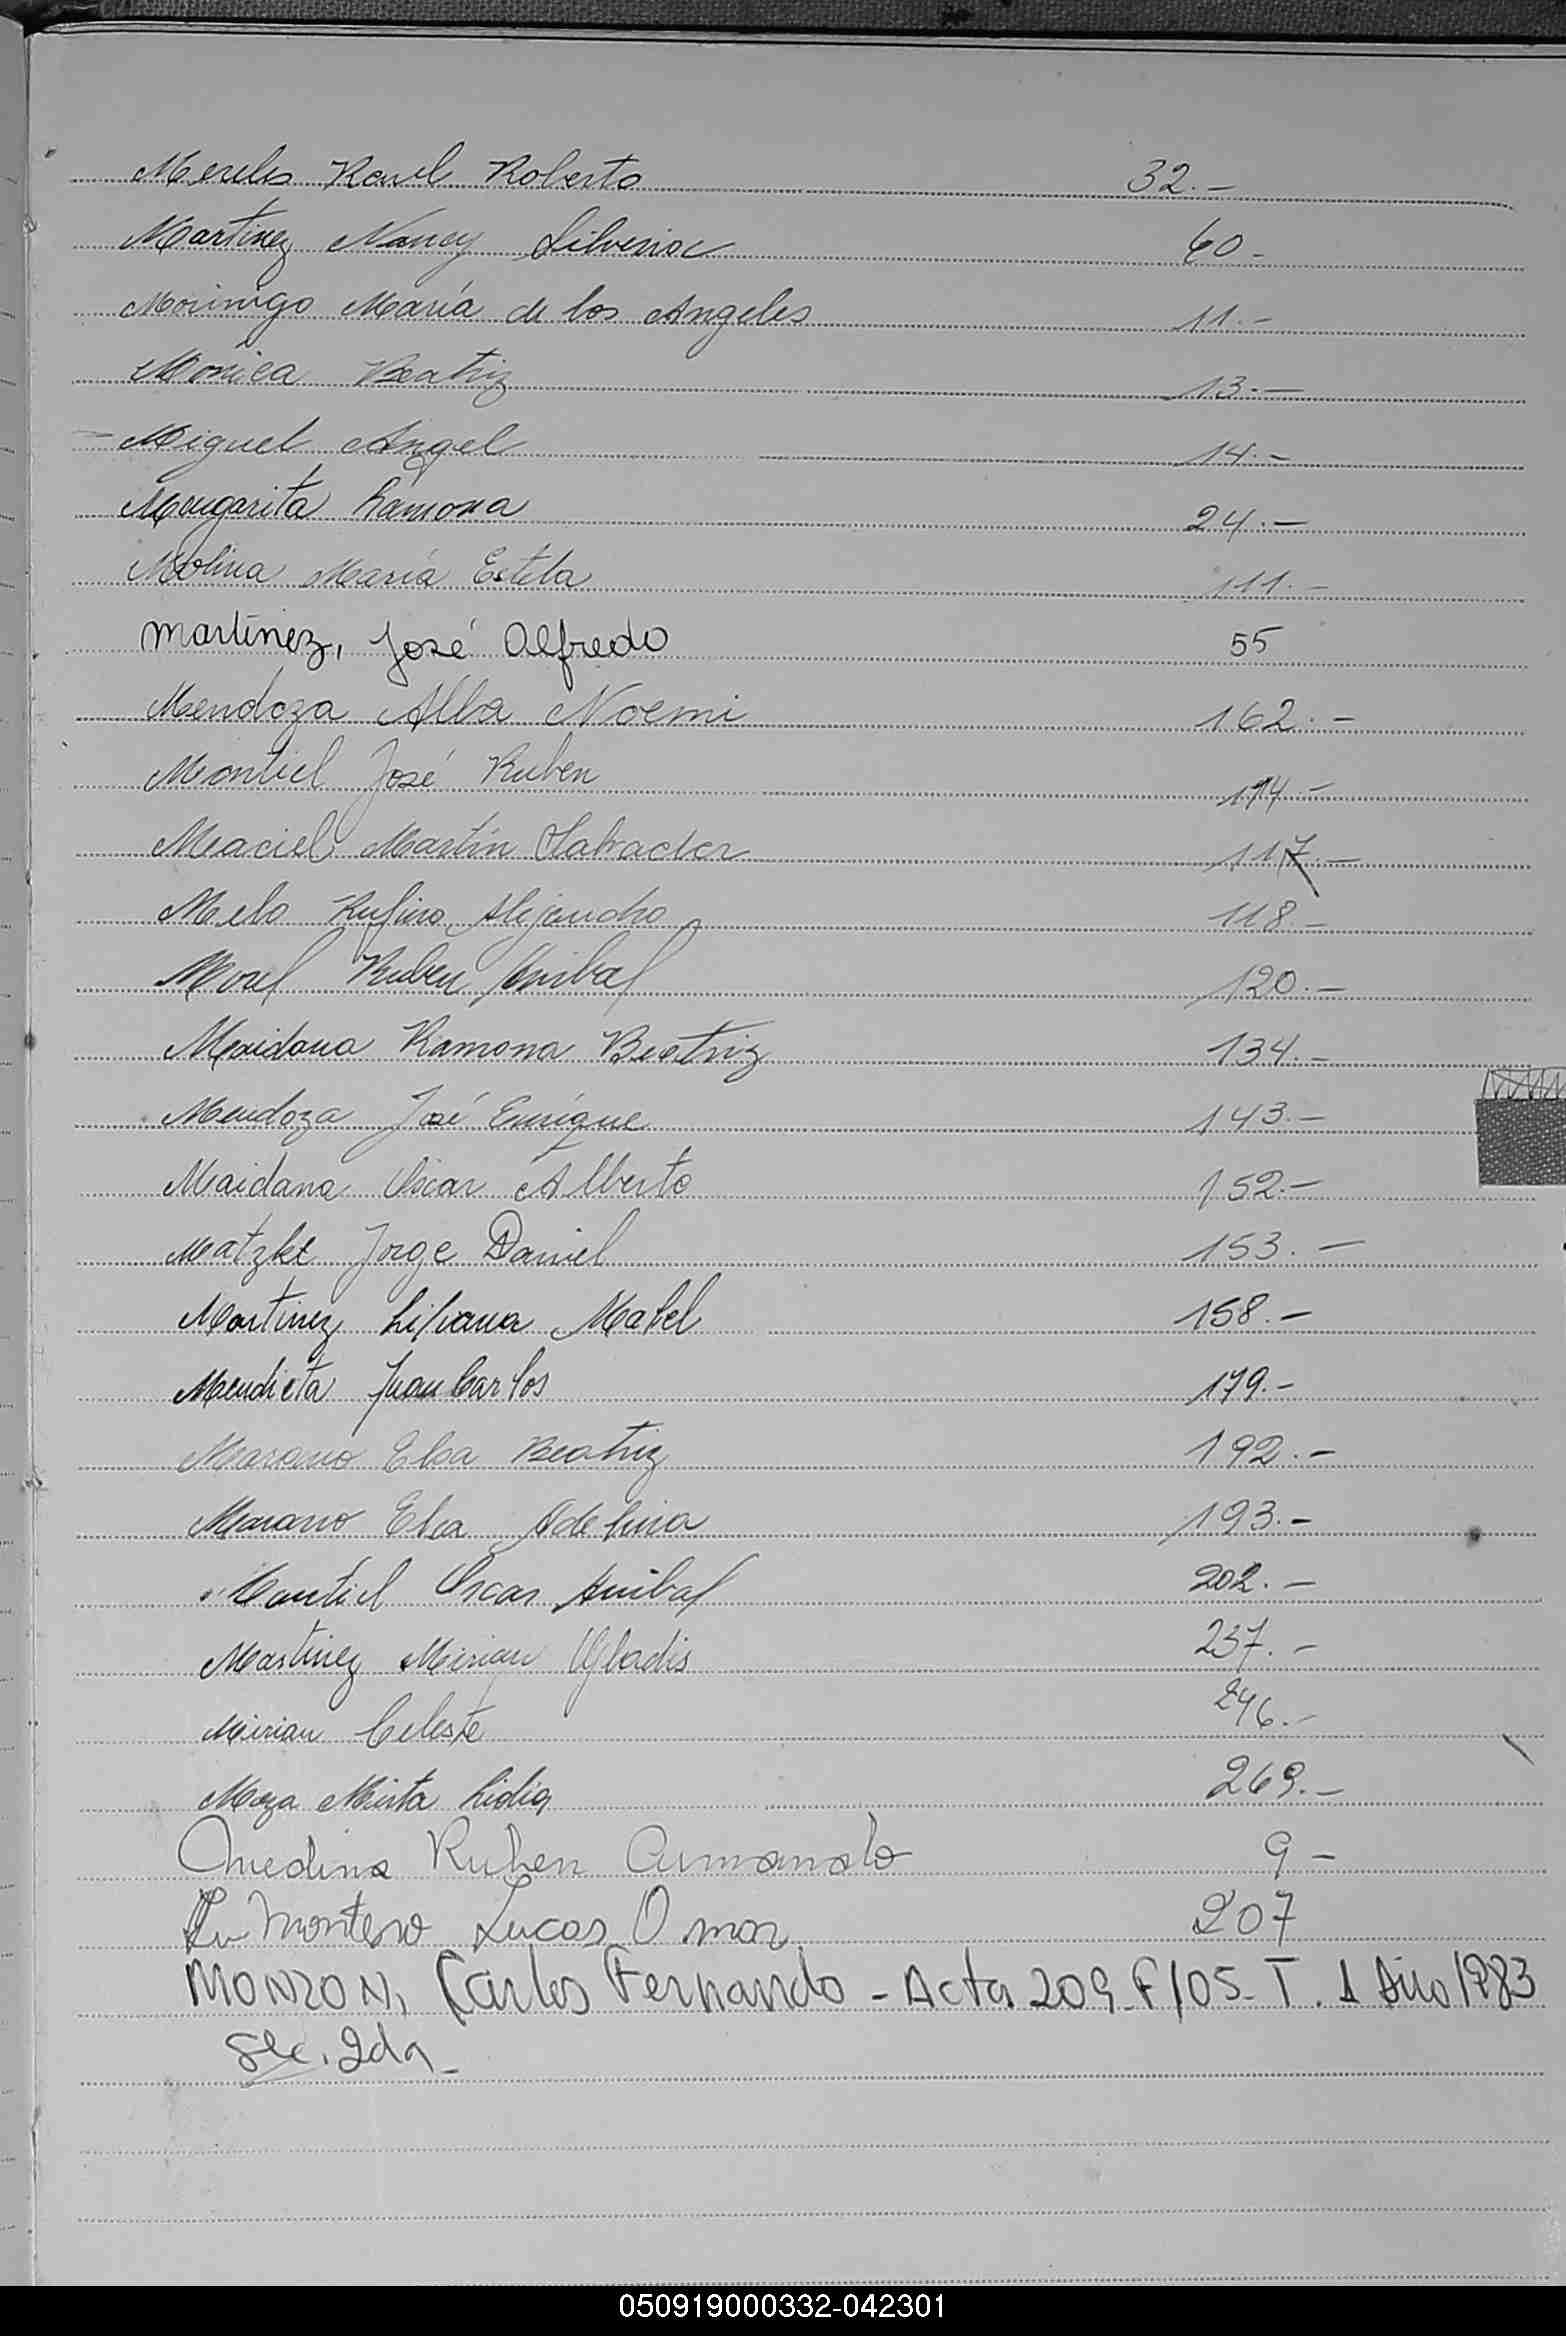 Mereles Raul Roberto 32.-
Martinez Nancy Silveria 60-
Morinigo María de los Angeles 11.-
Monica Beatriz 13.-
Miguel Angel 14.-
Margarita Ramona 24.-
Molina María Estela 111.-
Martínez, José Alfredo 55
Mendoza Alba Noemi 162.-
Montiel José Ruben 114.-
Maciel Martín Salvador 117.-
Melo Rufino Alejandro 118.-
Morel Ruben Anibal 120.-
Maidana Ramona Beatriz 134.-
Mendoza José Enrique 143.-
Maidana Oscar Alberto 152.-
Matzke Jorge Daniel 153.-
Martinez Liliana Mabel 158.-
Mendieta Juan Carlos 179.-
Marano Elsa Beatriz 192.-
Marano Elsa Adelina 193.-
Montiel Oscar Anibal 202.-
Martinez Mirian Gladis 237.-
Mirian Celeste 246.-
Meza Mirta Lidia 269.-
Medina Ruben Armando 9-
Montero Lucas Omar 207
MONZON, Carlos Fernando - Acta 209-F/05- T. 1 Año 1983
Sec. 2da-
050919000332-042301